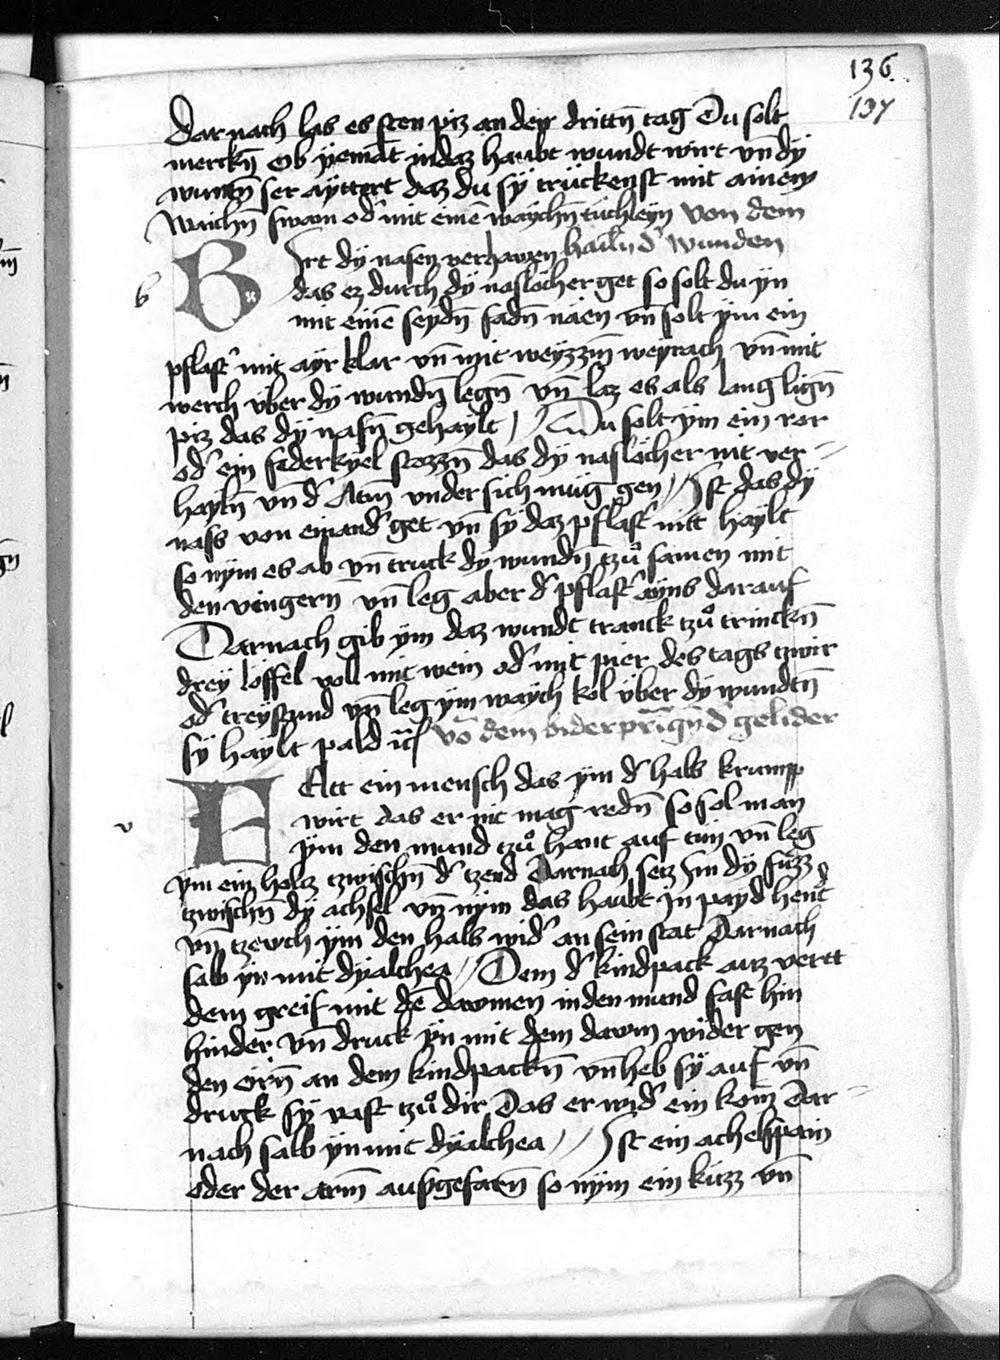 136
137
Darnach las es sten piz an den drittn̄ tag Du solt
merckn̄ Ob yemāt in daz haubt wundt wirt vn̄ dy
wuntn̄ ser ayttert daz du sy trückenst mit ainem
Waichn̄ swam od' mit einē waychn̄ tüchleyn Von dem
Irt dy nasen verhawen hailn̄ d' wunden
b W das ez durch dy naslöcher get so solt du yn
mit einē seydn̄ fadn̄ näen vn̄ solt ym ein
pflast' mit ayr klar vn̄ mit weyzzm̄ weyrach vn̄ mit
werch über dy wundn̄ legn̄ vn̄ laz es als lang lign̄
piz das dy nasn̄ gehaylt // Du solt ym ein ror
od' ein federkyel stozzn̄ das dy naslöcher nit ver=
hayln̄ vn̄ d' Atm̄ vnder sich müg gen // Ist das dy
nass von enand' get vn̄ sy daz pflast' nitt haylt
so nym es ab vn̄ truck dy wundn̄ tzů samen mit
den vingern̄ vn̄ leg aber d' pflast' ayns darauf
Darnach gib ym daz wundt tranck tzů trinckn̄
drey löffel voll mit wein od' mit pier des tags tzwir
od' treystund vn̄ leg ym waych kol über dy wundtn̄
sy haylt pald ic̄ Vō dem widerprīgn̄ d' gelider
v H Ett ein mensch das ym d' hals krump
wirt das er nit mag redn̄ so sol man
ym den mund tzů hant auf tun vn̄ leg
ym ein holtz tzwischn̄ d' tzend Darnach setz Im dy füzz
tzwischn̄ dy achsel vn̄ nym das haubt in payd hend
vn̄ tzewch ym den hals wid' an sein stat Darnach
salb yn mit dyalthea // Dem d' kindpack auz vertt
dem greif mit dē dawmen in den mund fast hin
hinder vn̄ druck yn mit dem dawm wider gen
den örn̄ an dem kindpackn̄ vn̄ heb sy auf vn̄
druck sy vast tzů dir Das er wid' ein kom̄ Dar=
nach salb yn mit dyalthea // Ist ein achelspain
oder der arm̄ aufgefarn̄ so nym ein kuzz vn̄